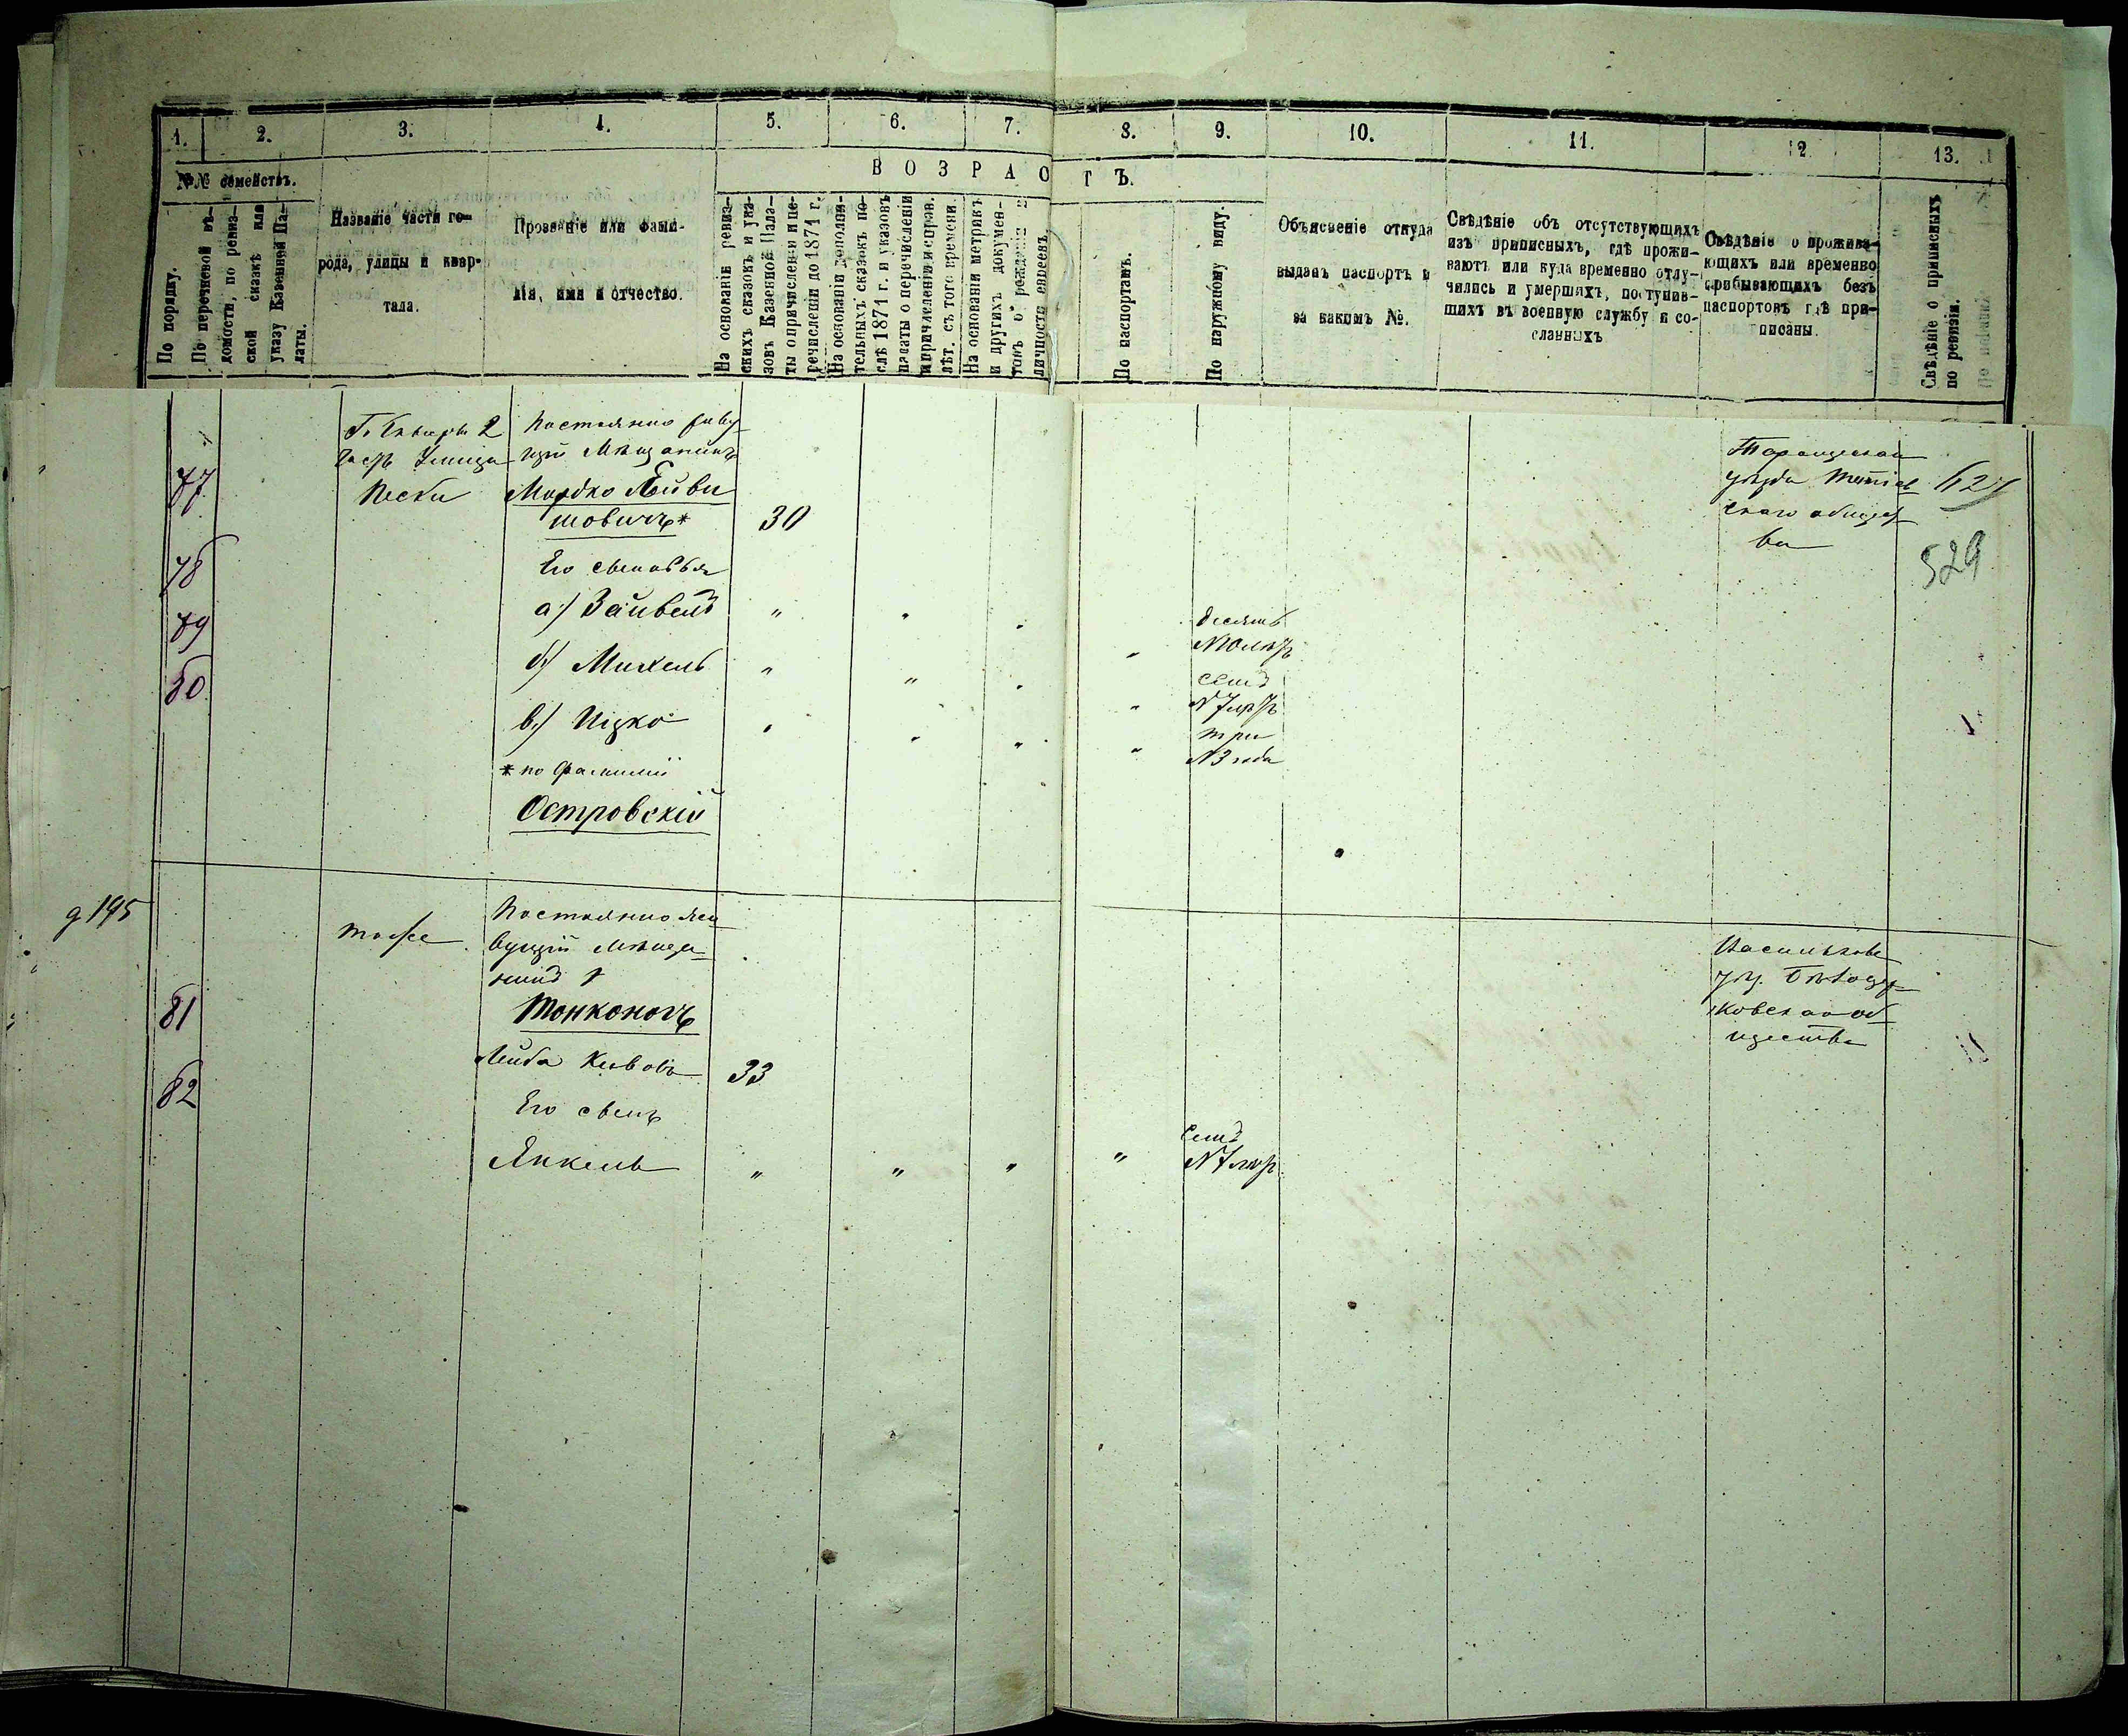 1. 2. 3. 4. 5. 6. 7. 8. 9. 10. 11. 12 13.
№№ семействъ.
В О З Р А С Т Ъ.
По порядку.
По перечневой вѣ-
домости, по ревиз-
ской сказкѣ или
указу Казенной Па-
латы.
Названіе части го-
рода, улицы и квар-
тала.
Прозваніе или фами-
лія, имя и отчество.
На основаніи ревиз-
скихъ сказокъ и ука-
зовъ Казенной Пала-
ты о причисленіи и пе-
речисленіи до 1871 г.
На основаніи дополни-
тельныхъ сказокъ по-
слѣ 1871 г. и указовъ
палаты о перечисленіи
и причисленіи и справ.
лѣт. съ того времени.
На основаніи метрикъ
и другихъ докумен-
товъ о рожденіи и
личности евреевъ.
По паспортамъ.
По наружному виду.
Объясненіе откуда
выданъ паспортъ и
за какимъ №.
Свѣдѣніе объ отсутствующихъ
изъ приписныхъ, гдѣ прожи-
ваютъ или куда временно отлу-
чились и умершихъ, поступив-
шихъ въ военную службу и со-
сланныхъ
Свѣдѣніе о прожива-
ющихъ или временно
прибывающихъ безъ
паспортовъ гдѣ при-
писаны.
Свѣдѣніе о приписныхъ
по ревизіи.
2
часть Улица
Пески
Постоянно живу
щій Мѣщанинъ
77 Мордко Лейви
шовичъ* 30
Таращескаго
уѣзда
скаго общест
ва
529
78 Его сыновья
79 а) Зайвелъ " " " десять
10 лѣтъ
80 б) Михель " " " " семь
7 лѣтъ
в) Ицко " " " " три
3 года
* по фамиліи
Островскій
д 195
тоже
Постоянно жи
вущій мѣща-
нинъ
81 Тонконогъ
Лейба 33
82 Его сынъ
Янкель " " " " семь
7 лѣтъ
Васильков
уѣз. Бѣлоцер
ковскаго об
щества